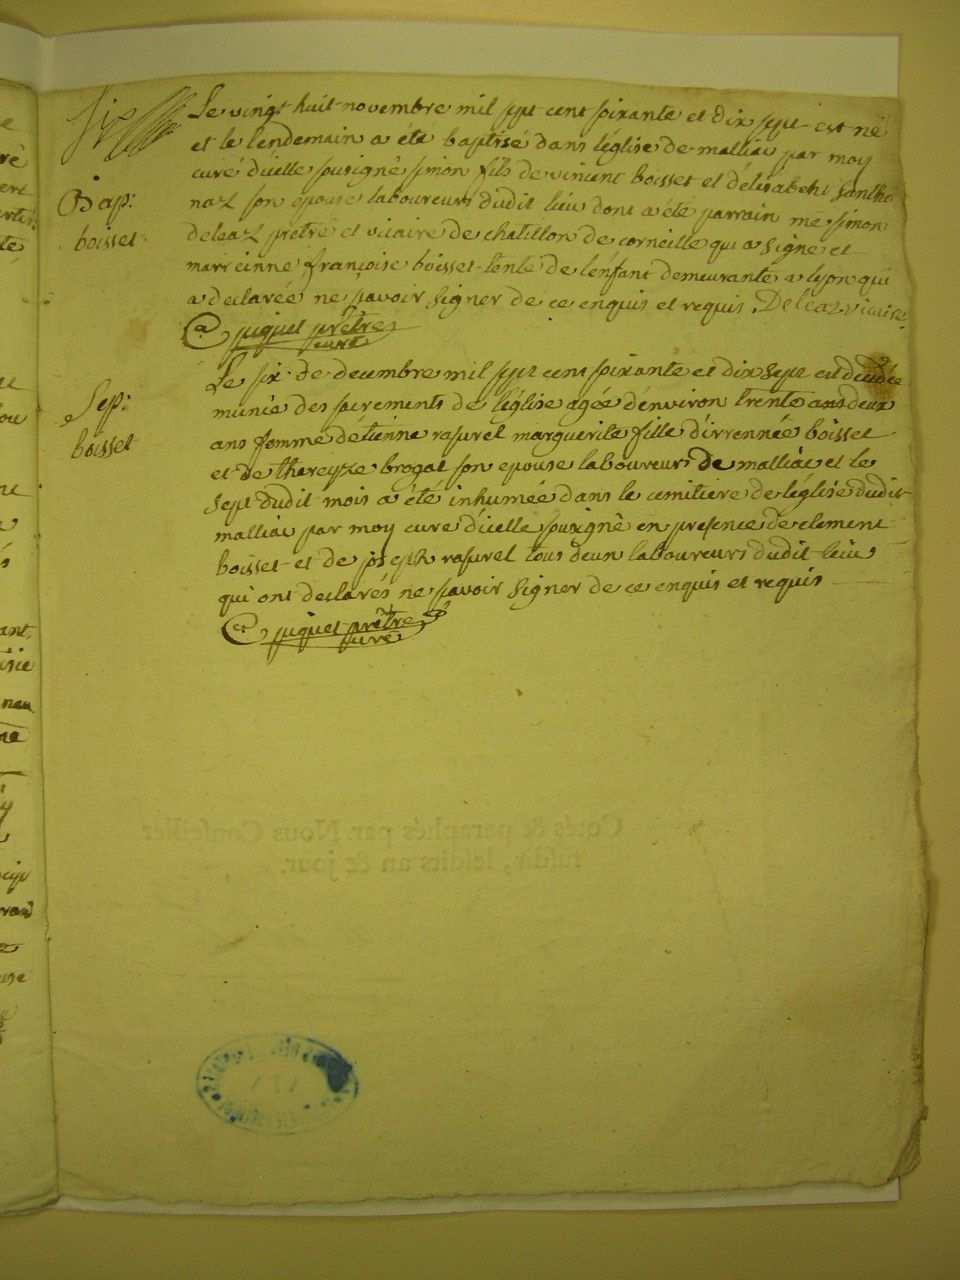 six
Le vingt huit novembre mil sept cent soixante et dix sept est né
et le lendemain a eté baptisé dans léglise de malliac par moy
Bap:
boisset
curé dicelle sousigné simon fils de vincent boisset et délisabeht
naz son epouse laboureurs dudit lieu dont a été parrain me simon
deleaz prêtre et vicaire de chatillon de corneille qui a signé et
marreinne françoise boisset tente de lenfant demeurante a lyon qui
a declarée ne sçavoir signer de ce enquis et requis. Deleaz vicaire
juquet prêtre
curé
Sep:
boisset
Le six de decembre mil sept cent soixante et dix sept est decedée
munie des sacrements de léglise agée denviron trente deux
ans femme détienne rasurel marguerite fille boisset
et de thereyze brogat son epouse laboureurs de malliac et le
sept dudit mois a été inhumée dans le cemitiere de léglise dudit
malliac par moy curé dicelle sousigné en presence de clement
boisset et de joseph rasurel tous deux laboureurs dudit lieu
qui ont declarés ne sçavoir signer de ce enquis et requis
juquet prêtre
curé
Cotés & paraphés par Nous Conseiller
susdit, lesdits an & jour.